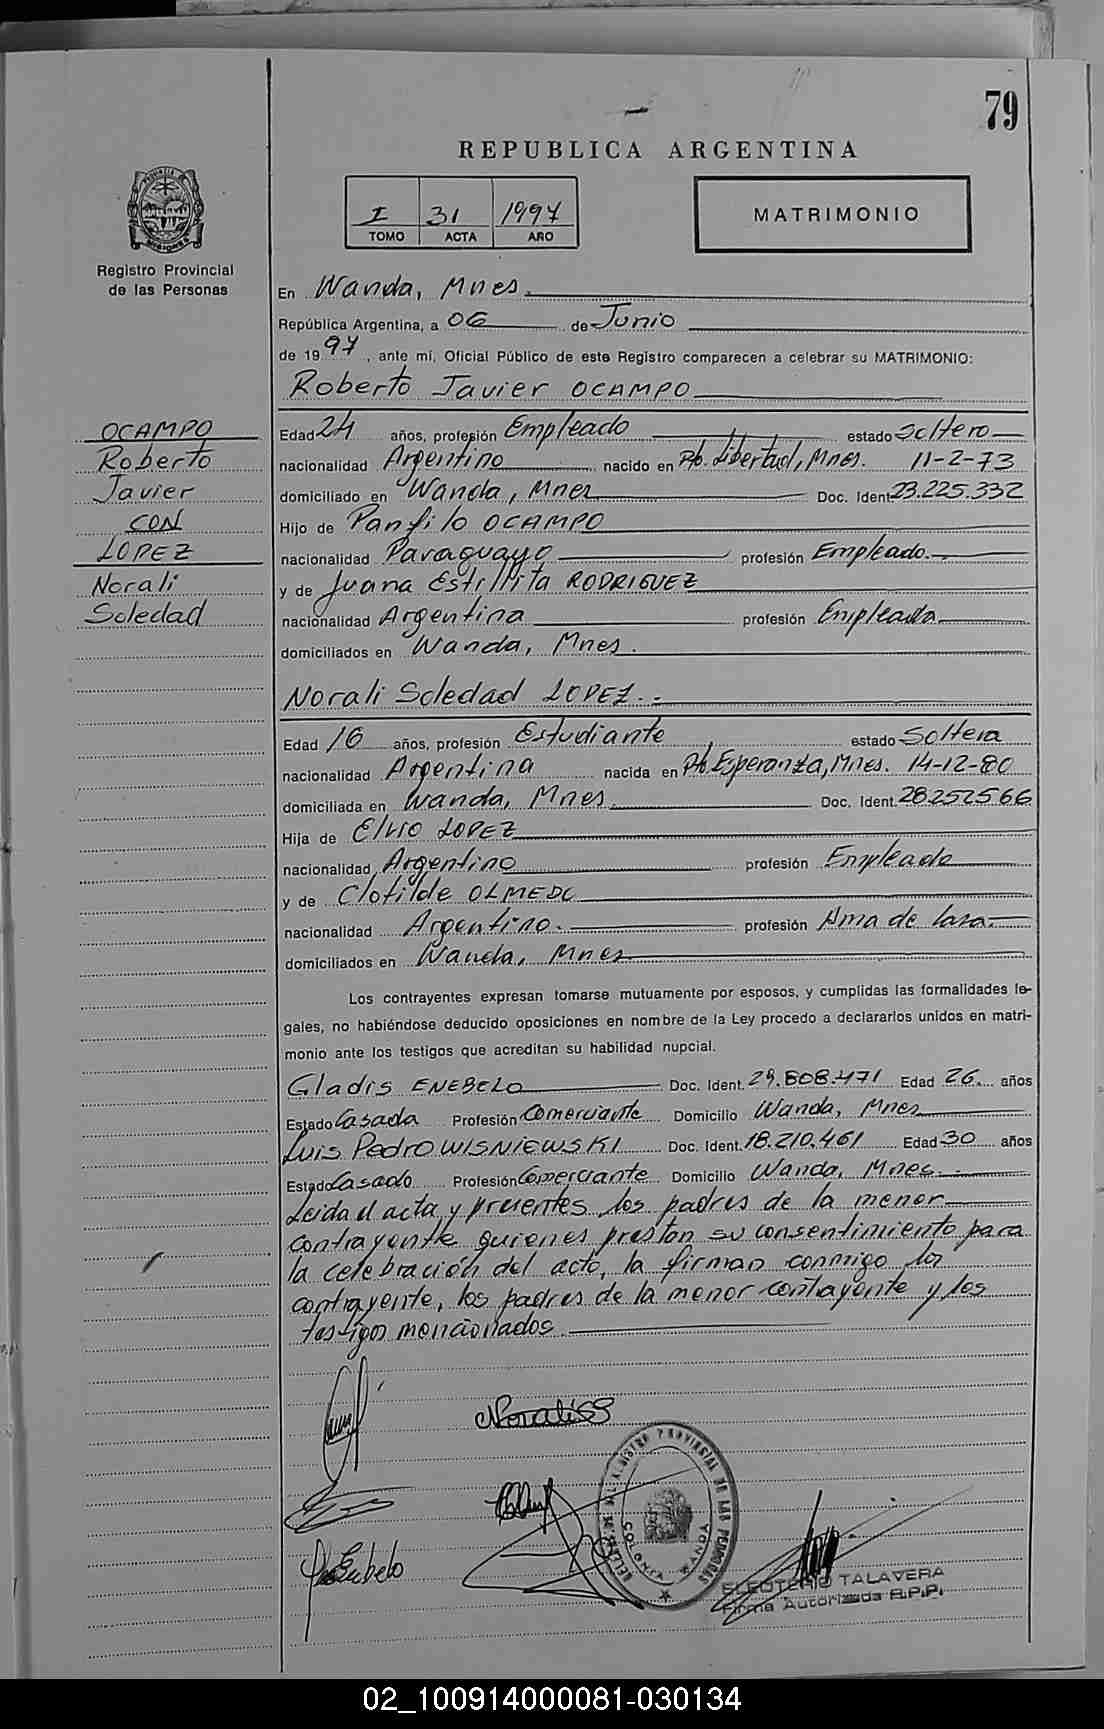 79
REPUBLICA ARGENTINA
I 31 1997
TOMO ACTA AÑO
MATRIMONIO
PROVINCIA DE MISIONES
Registro Provincial
de las Personas
En Wanda, Mnes.
República Argentina, a 06 de Junio
de 1997, ante mí, Oficial Público de este Registro comparecen a celebrar su MATRIMONIO:
Roberto Javier OCAMPO
OCAMPO
Roberto
Javier
CON
LOPEZ
Norali
Soledad
Edad 24 años, profesión Empleado estado Soltero
nacionalidad Argentino nacido en Pto. Libertad, Mnes. 11-2-73
domiciliado en Wanda, Mnes Doc. Ident. 23.225.332
Hijo de Panfilo OCAMPO
nacionalidad Paraguayo profesión Empleado.
y de Juana Estillita RODRIGUEZ
nacionalidad Argentina profesión Empleada
domiciliados en Wanda, Mnes.
Norali Soledad LOPEZ.
Edad 16 años, profesión Estudiante estado Soltera
nacionalidad Argentina nacida en Pto. Esperanza, Mnes. 14-12-80
domiciliada en Wanda, Mnes Doc. Ident. 28.252.566
Hija de Elvio LOPEZ
nacionalidad Argentino profesión Empleado
y de Clotilde OLMEDO
nacionalidad Argentino. profesión Ama de Casa.
domiciliados en Wanda, Mnes
Los contrayentes expresan tomarse mutuamente por esposos, y cumplidas las formalidades le-
gales, no habiéndose deducido oposiciones en nombre de la Ley procedo a declararlos unidos en matri-
monio ante los testigos que acreditan su habilidad nupcial.
Gladis ENEBELO Doc. Ident. 29.808.471 Edad 26 años
Estado Casada Profesión Comerciante Domicilio Wanda, Mnes
Luis Pedro WISNIEWSKI Doc. Ident. 18.210.461 Edad 30 años
Estado Casado Profesión Comerciante Domicilio Wanda, Mnes.
Leida el acta y presentes los padres de la menor
contrayente quienes prestan su consentimiento para
la celebración del acto, la firman conmigo los
contrayente, los padres de la menor contrayente y los
testigos mencionados.
Norali SS
REGISTRO PROVINCIAL DE LAS PERSONAS
COLONIA WANDA
ELEOTERIO TALAVERA
Firma Autorizada R.P.P.
02_100914000081-030134